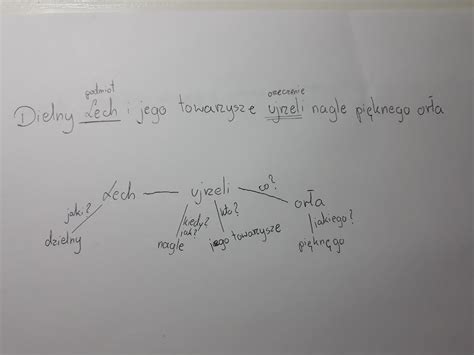 podmiot orzeczenie
Dielny Lech i jego towarzysze ujrzeli nagle pięknego orła
Lech — ujrzeli co? orła
jaki? kiedy? kto? jakiego?
jak?
dzielny nagle jego towarzysze pięknego